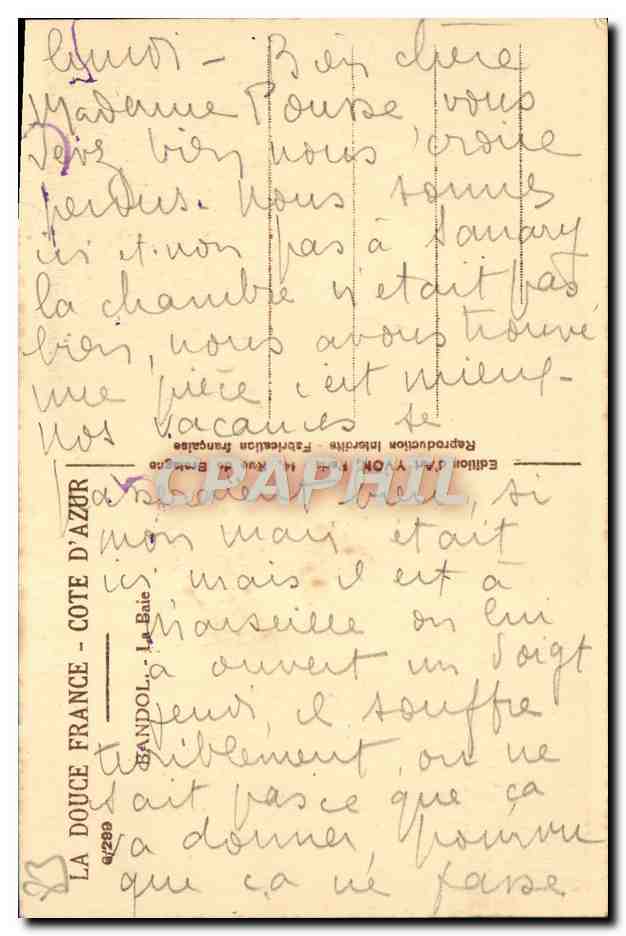 lundi - Bien chère
Madame Pousse vous
devez bien nous croire
perdus. Nous sommes
ici et non pas à Sanary
la chambre n'était pas
bien, nous avons trouvé
une pièce c'est mieux -
Nos vacances se
passent bien, si
mon mari était
ici mais il est à
Marseille on lui
a ouvert un doigt
jeudi, il souffre
terriblement, on ne
sait pas ce que ça
va donner, pourvu
que ça ne fasse
Edition d'Art YVON, Paris, 14, Rue de Bretagne
Reproduction Interdite - Fabrication française
LA DOUCE FRANCE - COTE D'AZUR
6/299
BANDOL. - La Baie
CPAPHIL